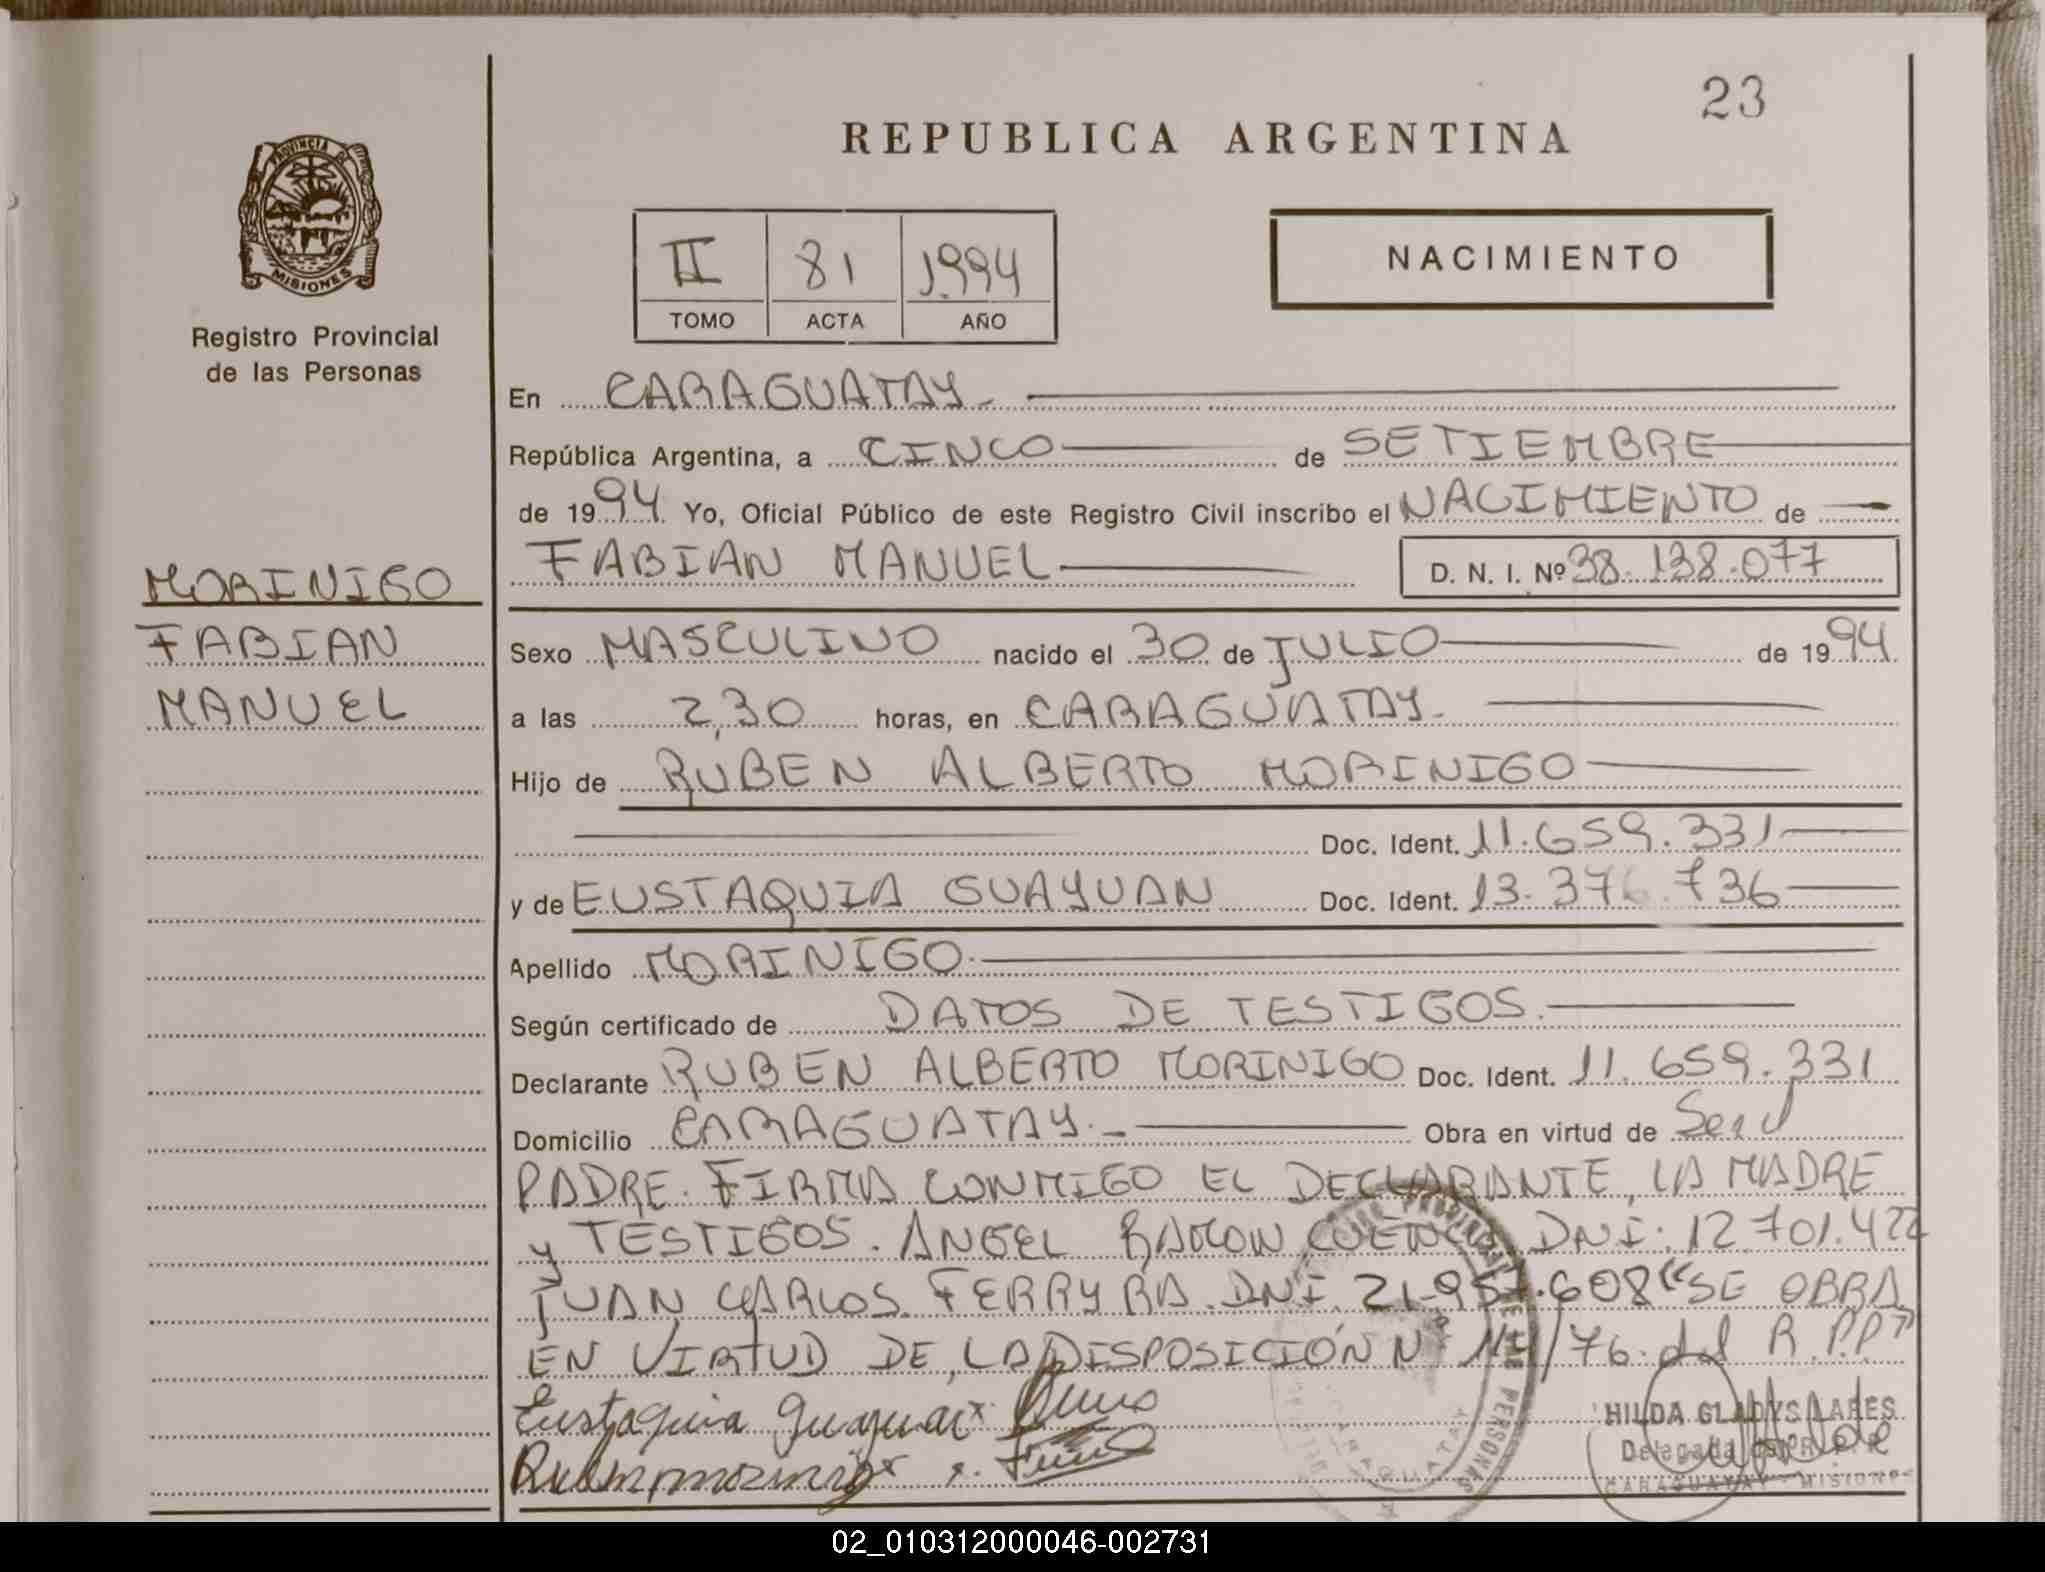 23
REPUBLICA ARGENTINA
PROVINCIA DE
MISIONES
Registro Provincial
de las Personas
II 81 1.994
TOMO ACTA AÑO
NACIMIENTO
En CARAGUATAY.
República Argentina, a CINCO de SETIEMBRE
de 1994 Yo, Oficial Público de este Registro Civil inscribo el NACIMIENTO de
FABIAN MANUEL D. N. I. Nº 38.138.077
MORINIGO
FABIAN
MANUEL
Sexo MASCULINO nacido el 30 de JULIO de 1994
a las 2,30 horas, en CARAGUATAY.
Hijo de RUBEN ALBERTO MORINIGO
Doc. Ident. 11.659.331
y de EUSTAQUIA GUAYUAN Doc. Ident. 13.376.736
Apellido MORINIGO.
Según certificado de DATOS DE TESTIGOS.
Declarante RUBEN ALBERTO MORINIGO Doc. Ident. 11.659.331
Domicilio CARAGUATAY.- Obra en virtud de Ser el
PADRE. FIRMA CONMIGO EL DECLARANTE, LA MADRE
y TESTIGOS. ANGEL RAMON CUENCA DNI. 12.701.422
JUAN CARLOS FERRYRA. DNI. 21.957.608 "SE OBRA
EN VIRTUD DE LA DISPOSICIÓN N 111/76. del R.P.P"
Eustaquia Guayuan
HILDA GLADYS LARES
Delegada del R. P. P.
CARAGUATAY - MISIONES
02_010312000046-002731